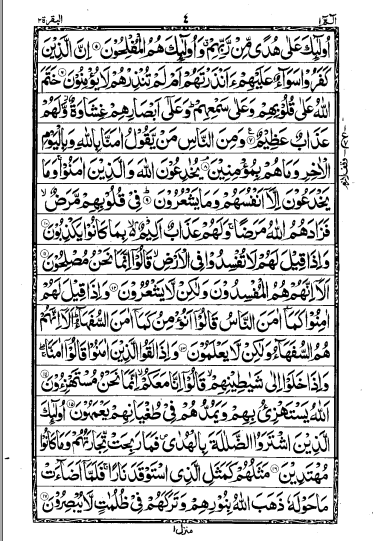 البقرة ٢
٤
الٓمّٓ ١
اُولٰٓئِكَ عَلٰى هُدًى مِّنْ رَّبِّهِمْ ۗ وَاُولٰٓئِكَ هُمُ الْمُفْلِحُوْنَ ۝۵ اِنَّ الَّذِيْنَ
كَفَرُوْا سَوَآءٌ عَلَيْهِمْ ءَاَنْذَرْتَهُمْ اَمْ لَمْ تُنْذِرْهُمْ لَا يُؤْمِنُوْنَ ۝۶ خَتَمَ
اللّٰهُ عَلٰى قُلُوْبِهِمْ وَعَلٰى سَمْعِهِمْ ؕ وَعَلٰٓى اَبْصَارِهِمْ غِشَاوَةٌ ؗ وَّلَهُمْ
عَذَابٌ عَظِيْمٌ ۝۷ وَمِنَ النَّاسِ مَنْ يَّقُوْلُ اٰمَنَّا بِاللّٰهِ وَبِالْيَوْمِ
الْاٰخِرِ وَمَا هُمْ بِمُؤْمِنِيْنَ ۝۸ يُخٰدِعُوْنَ اللّٰهَ وَالَّذِيْنَ اٰمَنُوْا ۚ وَمَا
يَخْدَعُوْنَ اِلَّآ اَنْفُسَهُمْ وَمَا يَشْعُرُوْنَ ۝۹ فِيْ قُلُوْبِهِمْ مَّرَضٌ ۙ
فَزَادَهُمُ اللّٰهُ مَرَضًا ۚ وَلَهُمْ عَذَابٌ اَلِيْمٌۢ ۙ بِمَا كَانُوْا يَكْذِبُوْنَ ۝۱۰
وَاِذَا قِيْلَ لَهُمْ لَا تُفْسِدُوْا فِي الْاَرْضِ ۙ قَالُوْٓا اِنَّمَا نَحْنُ مُصْلِحُوْنَ ۝۱۱
اَلَآ اِنَّهُمْ هُمُ الْمُفْسِدُوْنَ وَلٰكِنْ لَّا يَشْعُرُوْنَ ۝۱۲ وَاِذَا قِيْلَ لَهُمْ
اٰمِنُوْا كَمَآ اٰمَنَ النَّاسُ قَالُوْٓا اَنُؤْمِنُ كَمَآ اٰمَنَ السُّفَهَآءُ ؕ اَلَآ اِنَّهُمْ
هُمُ السُّفَهَآءُ وَلٰكِنْ لَّا يَعْلَمُوْنَ ۝۱۳ وَاِذَا لَقُوا الَّذِيْنَ اٰمَنُوْا قَالُوْٓا اٰمَنَّا ۖۚ
وَاِذَا خَلَوْا اِلٰى شَيٰطِيْنِهِمْ ۙ قَالُوْٓا اِنَّا مَعَكُمْ ۙ اِنَّمَا نَحْنُ مُسْتَهْزِءُوْنَ ۝۱۴
اَللّٰهُ يَسْتَهْزِئُ بِهِمْ وَيَمُدُّهُمْ فِيْ طُغْيَانِهِمْ يَعْمَهُوْنَ ۝۱۵ اُولٰٓئِكَ
الَّذِيْنَ اشْتَرَوُا الضَّلٰلَةَ بِالْهُدٰى ۪ فَمَا رَبِحَتْ تِّجَارَتُهُمْ وَمَا كَانُوْا
مُهْتَدِيْنَ ۝۱۶ مَثَلُهُمْ كَمَثَلِ الَّذِي اسْتَوْقَدَ نَارًا ۚ فَلَمَّآ اَضَآءَتْ
مَا حَوْلَهٗ ذَهَبَ اللّٰهُ بِنُوْرِهِمْ وَتَرَكَهُمْ فِيْ ظُلُمٰتٍ لَّا يُبْصِرُوْنَ ۝۱۷
منزل ۱